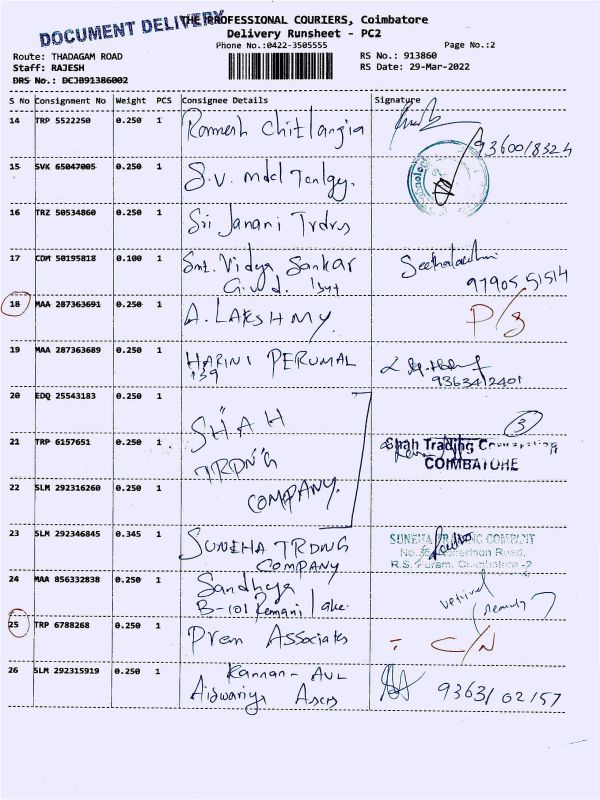 DOCUMENT DELIVERY
THE PROFESSIONAL COURIERS, Coimbatore
Delivery Runsheet - PC2
Phone No.:0422-3505555 Page No.:2
Route: THADAGAM ROAD RS No.: 913860
Staff: RAJESH RS Date: 29-Mar-2022
DRS No.: DCJB91386002
S No Consignment No Weight PCS Consignee Details Signature
14 TRP 5522250 0.250 1 Ramesh Chitlangia
9360018324
15 SVK 65047005 0.250 1 S.V. mdcl
16 TRZ 50534860 0.250 1 Sri Janani Trdrs
17 CDM 50195818 0.100 1 Smt. Vidya Sankar Seethalakshmi
97905 51514
18 MAA 287363691 0.250 1 A. LAKSHMY. P/s
19 MAA 287363689 0.250 1 HARINI PERUMAL
139 9363412401
20 EDQ 25543183 0.250 1 SHAH
3
21 TRP 6157651 0.250 1 TRDNG Shah Trading
COIMBATORE
22 SLM 292316260 0.250 1 COMPANY.
23 SLM 292346845 0.345 1 SUNEHA TRDNG
COMPANY
SUNEHA TRADING
Robertson Road,
R.S. Puram, Coimbatore - 2
24 MAA 856332838 0.250 1 Sandhya
B-101
25 TRP 6788268 0.250 1 Prem Associates : C/N
26 SLM 292315919 0.250 1 Kannan - AVL
Aiswariya Ascts 93631 02157